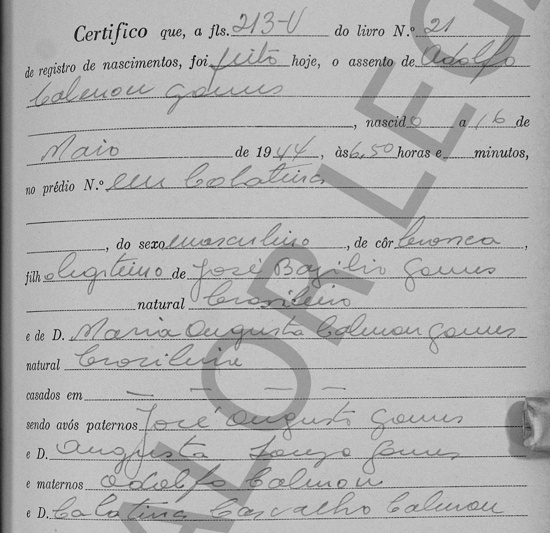 Certifico que, a fls. 213-V do livro N.º 21
de registro de nascimentos, foi feito hoje, o assento de Adolfo
Calmon Gomes
, nascido a 16 de
Maio de 1944, às 6,50 horas e minutos,
no prédio N.º em Colatina
, do sexo masculino, de côr branca,
filho legitimo de José Bazilio Gomes
natural brasileiro
e de D. Maria Augusta Calmon Gomes
natural brasileira
casados em — — — —
sendo avós paternos José Augusto Gomes
e D. Augusta Gomes
e maternos Adolfo Calmon
e D. Colatina Carvalho Calmon
VALOR LEGAL